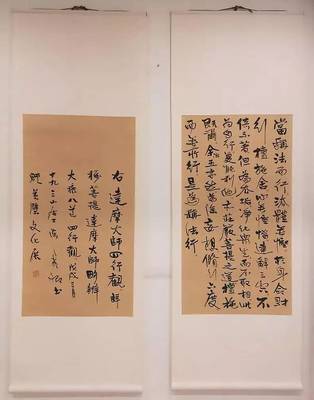 當稱法而行法體無慳於身命財
行檀施捨心無慳惜達解三空不
倚不著但為去垢淨化衆生而不取相此
為自行復能利他亦莊嚴菩提之道檀施
既爾余五亦然為除妄想修行六度
而無所行是為稱法行
右達摩大師四行觀
稱菩提達摩大師略辨
大乘入道四行觀戊戌三月
書
文化展